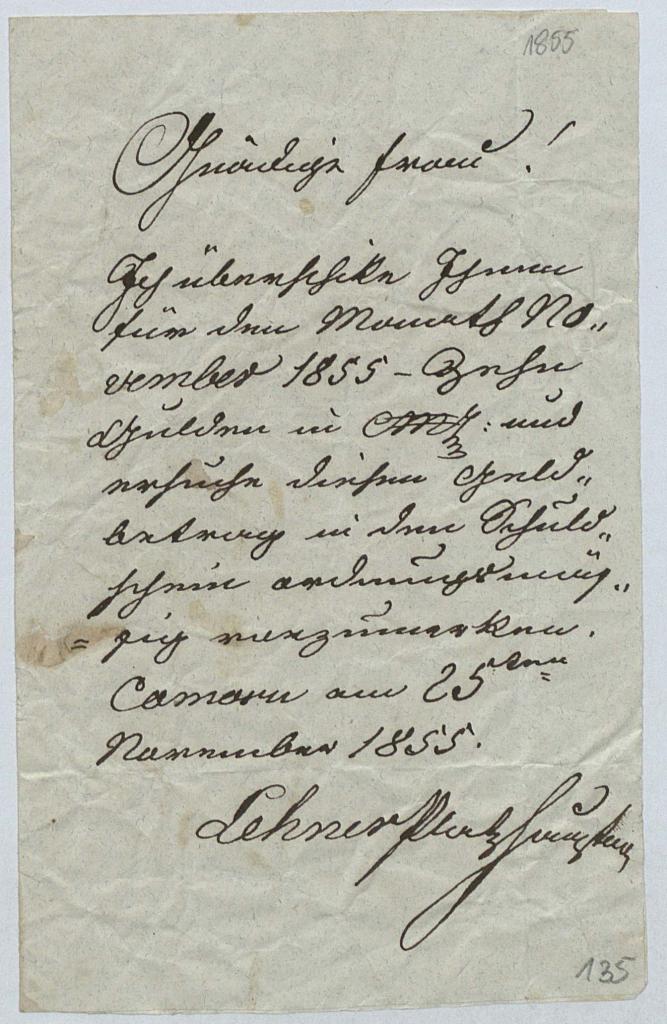 1855
Gnädige Frau !
Ich überschike Ihnen
für den Monath No„
vember 1855 – Zehn
Gulden in CMz : und
ersuche diesen Geld„
betrag in den Schuld„
schein ordnungsmäs„
= sig vorzumerken.
Comorn am 25ten
November 1855.
Lehner Platzhauptm
135